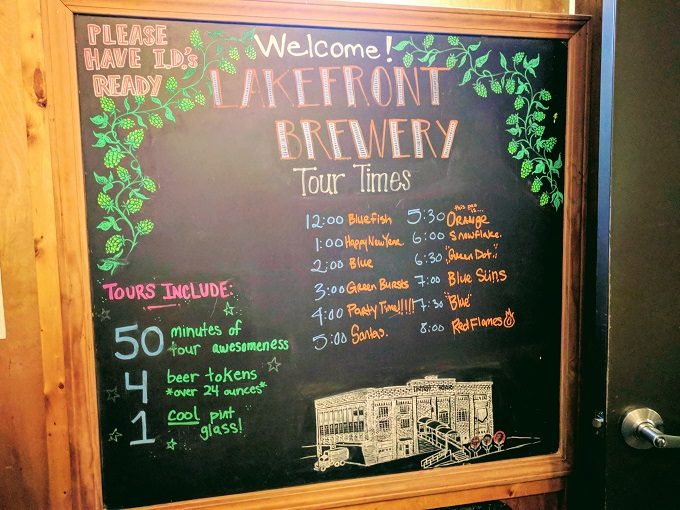 PLEASE
HAVE I.D.'s
READY
Welcome!
LAKEFRONT
BREWERY
Tour Times
12:00 Bluefish
1:00 Happy New Year
2:00 Blue
3:00 Green Bursts
4:00 Party Time!!!!!
5:00 Santas.
5:30 ORANGE
6:00 Snowflake.
6:30 "Green Dot."
7:00 Blue Suns
7:30 "Blue"
8:00 Red Flames
TOURS INCLUDE:
50 minutes of
tour awesomeness
4 beer tokens
*over 24 ounces*
1 cool pint
glass!